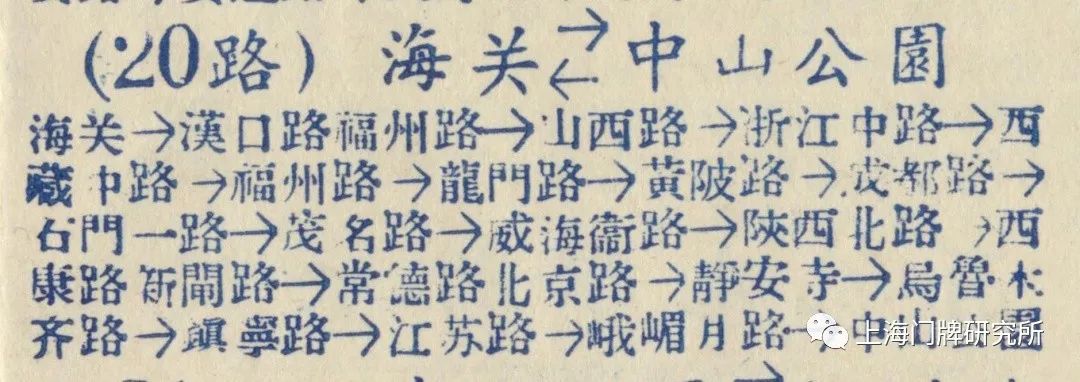 (20路) 海关⇄中山公園
海关→漢口路福州路→山西路→浙江中路→西
藏中路→福州路→龍門路→黃陂路→成都路→
石門一路→茂名路→威海衛路→陝西北路→西
康路新閘路→常德路北京路→靜安寺→烏魯木
齐路→鎭寧路→江苏路→峨嵋月路→中山公園
上海门牌研究所